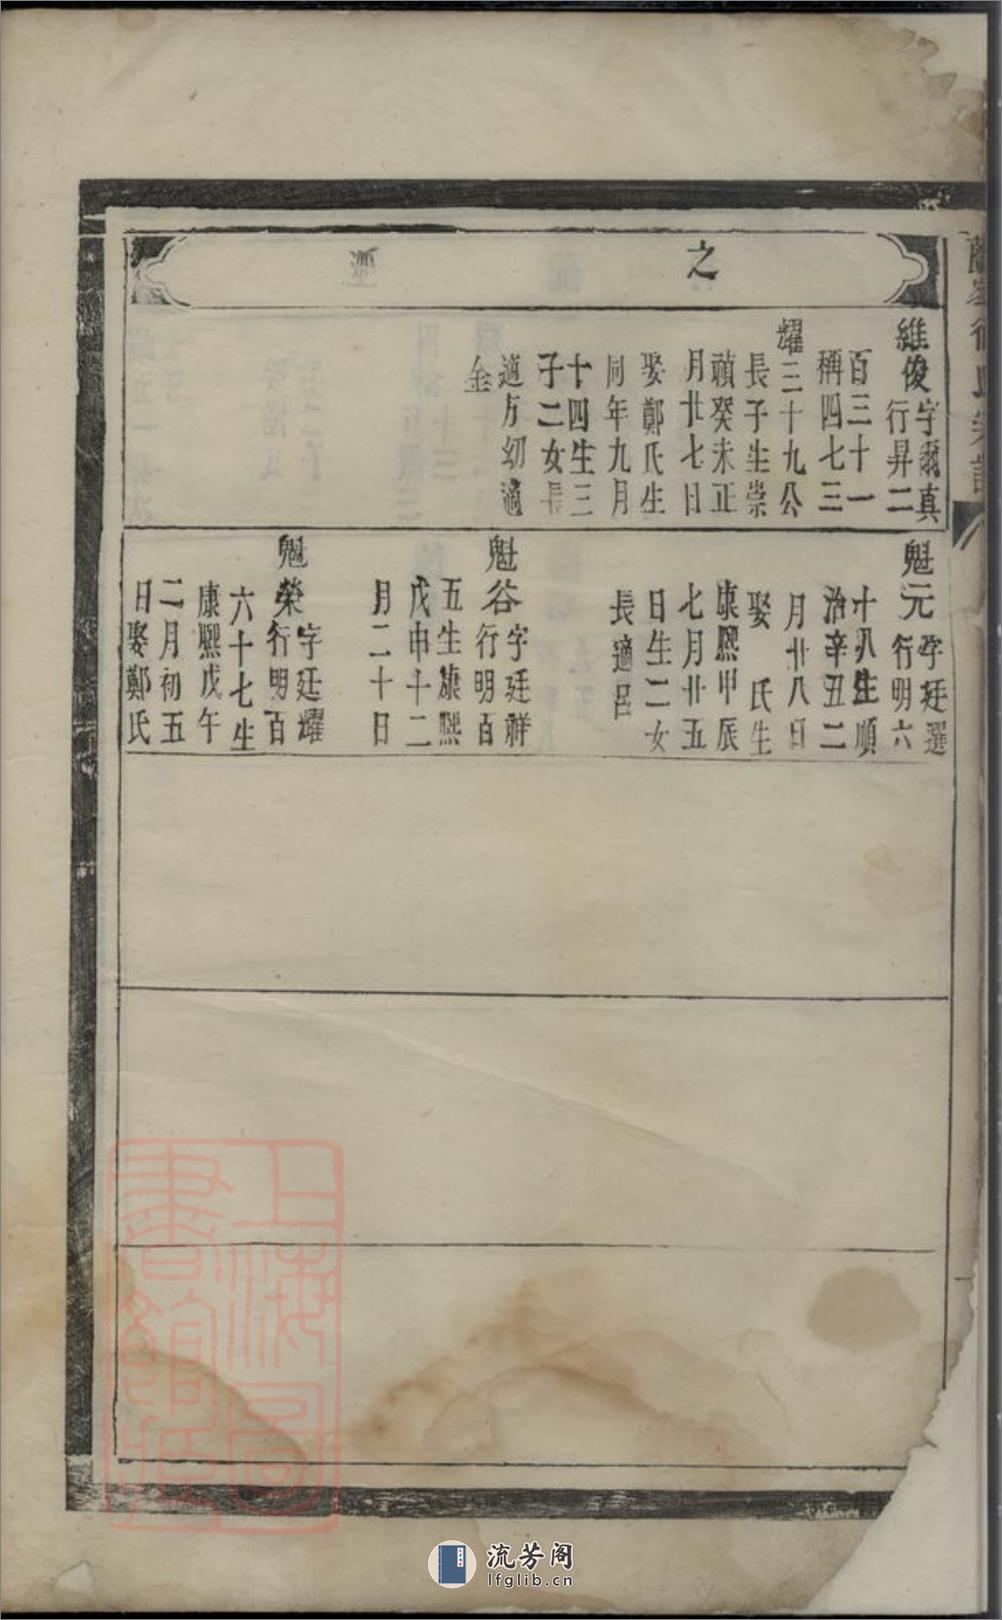 之
維俊字爾真
行昇二
百三十一
稱四七三
耀三十九公
長子生崇
禎癸未正
月廿七日
娶鄭氏生
同年九月
十四生三
子二女長
適方幼適
金
魁元字廷選
行明六
十八生順
治辛丑二
月廿八日
娶 氏生
康熙甲辰
七月廿五
日生二女
長適呂
魁谷字廷祥
行明百
五生康熙
戊申十二
月二十日
魁榮字廷耀
行明百
六十七生
康熙戊午
二月初五
日娶鄭氏
上海圖
書館藏
流芳阁
lfglib.cn